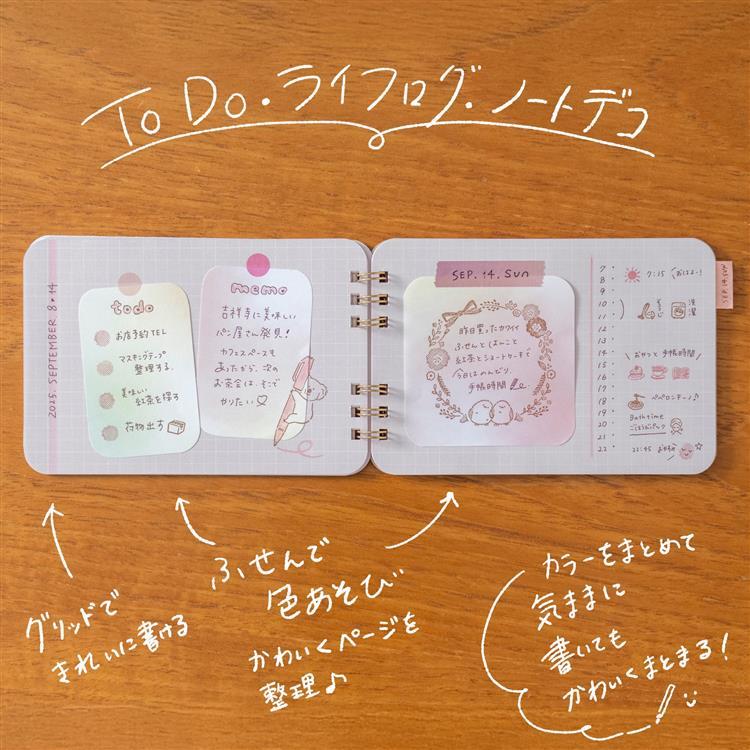 ToDo・ライフログ・ノートデコ
2025. SEPTEMBER 8・14
todo
お店予約TEL
マスキングテープ
整理する.
美味しい
紅茶を探す
荷物出す
memo
吉祥寺に美味しい
パン屋さん発見!
カフェスペースも
あったから、次の
お茶会は、そこで
やりたい♡
SEP. 14. SUN
昨日買ったカワイイ
ふせんとはんこと
紅茶とショートケーキで
今日はのんびり、
手帳時間
SEP. 14. SUN
7
8
9
10
11
12
13
14
15
16
17
18
19
20
21
22
7:15 おはよー!
洗濯
おやつと手帳時間
ペペロンチーノ♪
Bathtime
ごほうびパック
22:45
グリッドで
きれいに書ける
ふせんで
色あそび
かわいくページを
整理♪
カラーをまとめて
気ままに
書いても
かわいくまとまる!